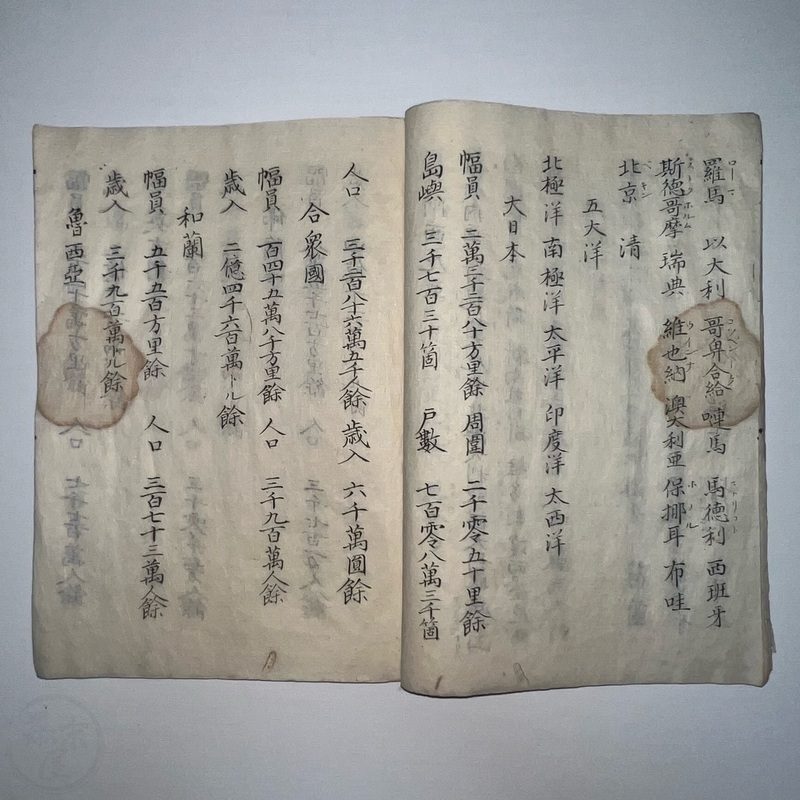 羅馬 以大利 哥卑合給 嗹馬 馬德利 西班牙
斯德哥摩 瑞典 維也納 澳大利亜 保挪耳 布哇
北京 清
五大洋
北極洋 南極洋 太平洋 印度洋 太西洋
大日本
幅員 二萬三千三百八十方里餘 周圍 二千零五十里餘
島嶼 三千七百三十箇 戸數 七百零八萬三千箇
人口 三千三百八十六萬五千餘 歳入 六千萬圓餘
合衆國
幅員 百四十五萬八千方里餘 人口 三千九百萬人餘
歳入 二億四千六百萬ドル餘
和蘭
幅員 五千五百方里餘 人口 三百七十三萬人餘
歳入 三千九百萬ドル餘
魯西亞